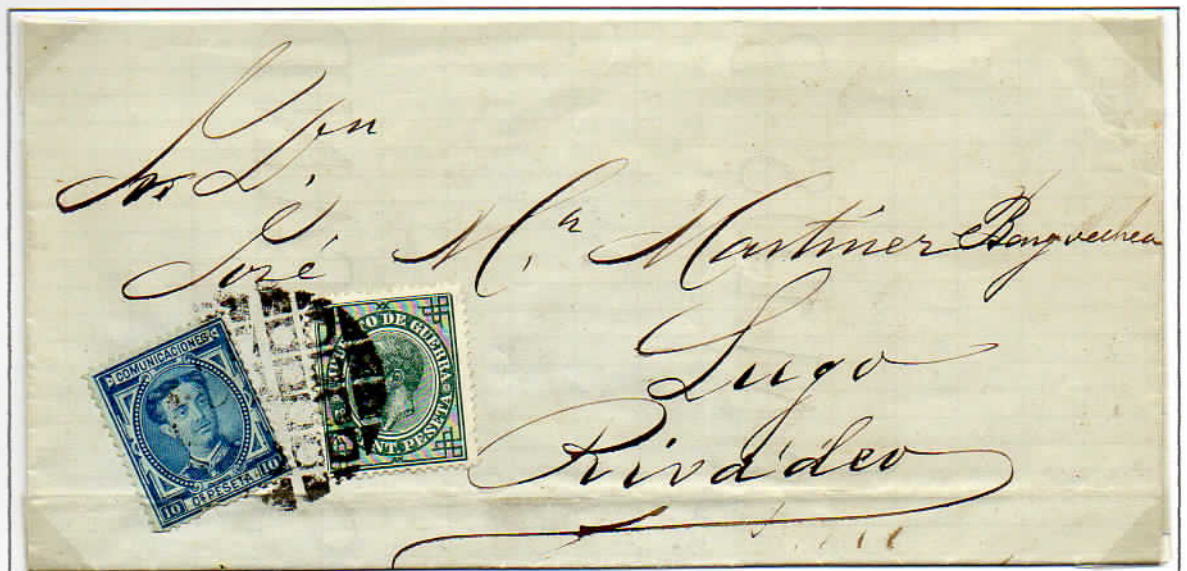 Sr. D.
José M.ª Martinez
Lugo
Rivadeo
COMUNICACIONES
10 Cs PESETA 10
IMPUESTO DE GUERRA
5 CENT. PESETA